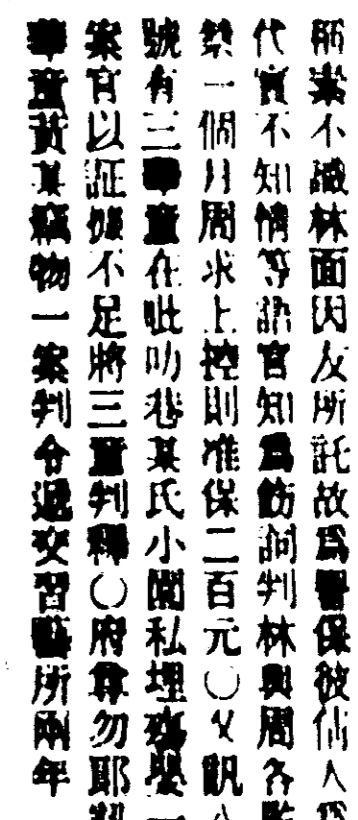 素不識林面因友所託故爲醫保彼佔人
代實不知情等語官知爲飾詞判林與周各監
禁一個月周求上控則准保二百元〇又訊八
號有三華童在呲叻巷某氏小園私埋殤嬰一
案官以証據不足將三童判釋〇府尊勿耶
華童黃某竊物一案判令遞交習藝所兩年